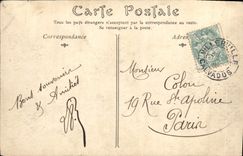 Carte Postale
Tous les pays étrangers n'acceptent pas la correspondance au recto.
Se renseigner à la poste.
Correspondance
Monsieur
Colon
19 Rue St Apoline
Paris
Bons souvenirs
CALVADOS